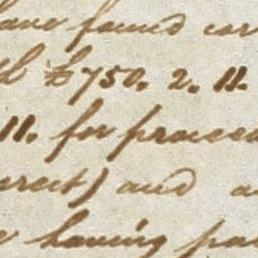 have found cor
£750. 2. 11.
11. for proceed
rrect) and a
having pa